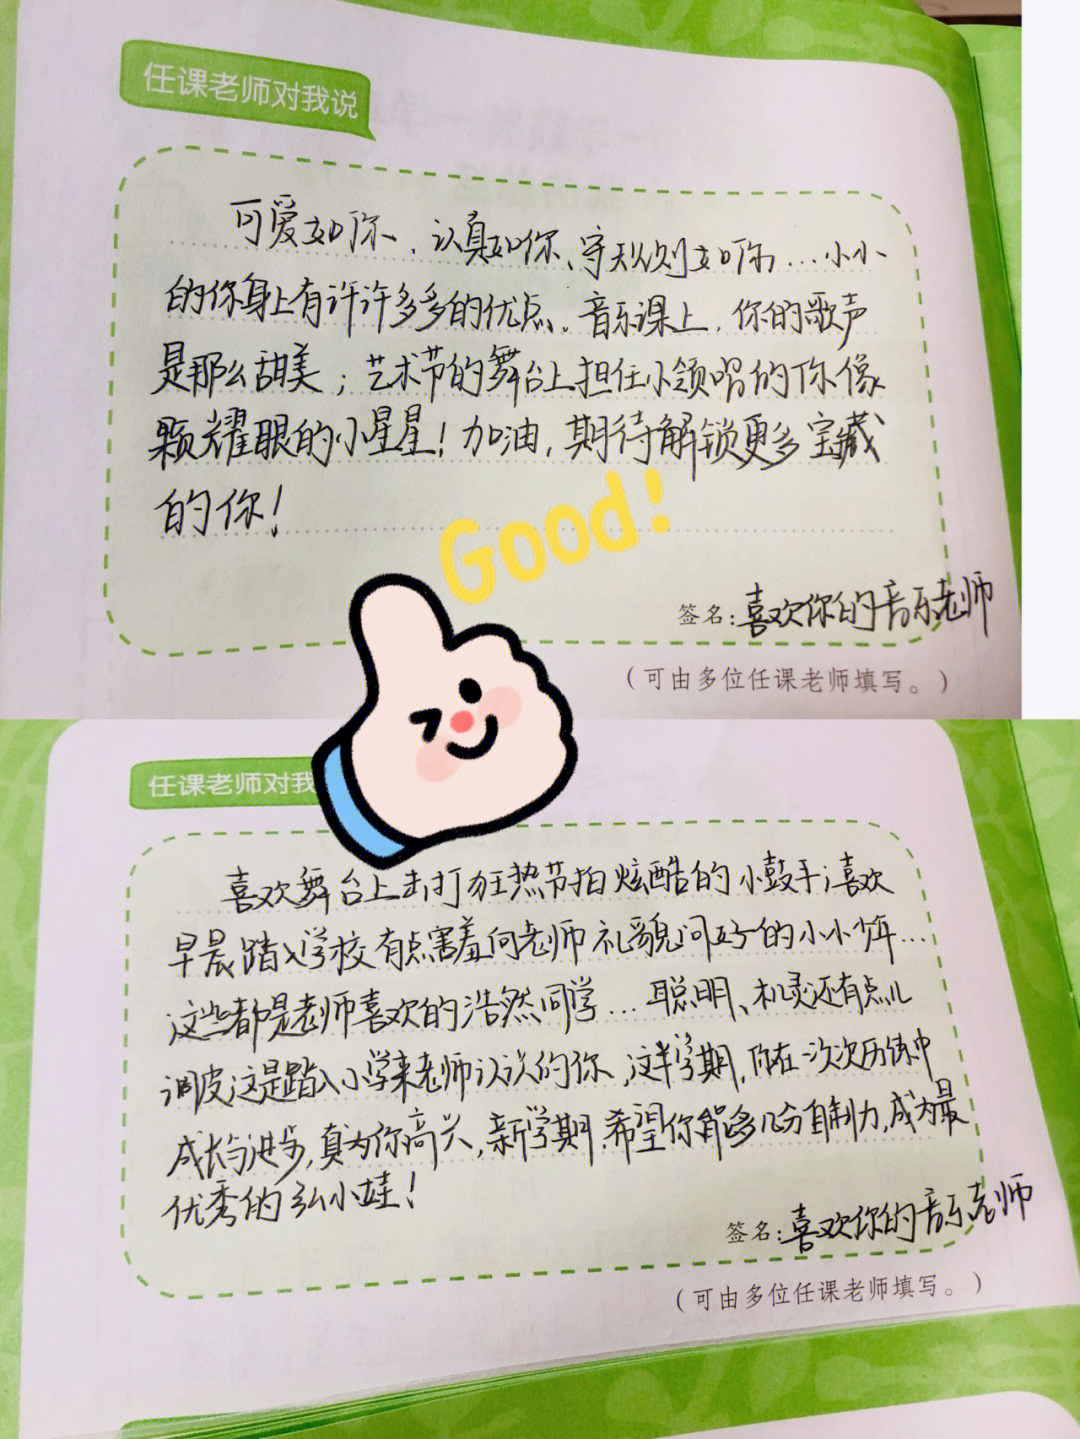 任课老师对我说
可爱如你、认真如你、守规则如你,...小小
的你身上有许许多多的优点。音乐课上,你的歌声
是那么甜美;艺术节的舞台上担任小领唱的你像
颗耀眼的小星星!加油,期待解锁更多宝藏
的你!
Good!
签名:喜欢你的音乐老师
(可由多位任课老师填写。)
任课老师对我
喜欢舞台上击打狂热节拍炫酷的小鼓手;喜欢
早晨踏入学校有点害羞向老师礼貌问好的小小少年...
这些都是老师喜欢的浩然同学...聪明、机灵还有点儿
调皮这是踏入小学来老师认识的你,这半学期,你在一次次历练中
成长与进步,真为你高兴,新学期,希望你能多几分自制力,成为最
优秀的弘小娃!
签名:喜欢你的音乐老师
(可由多位任课老师填写。)